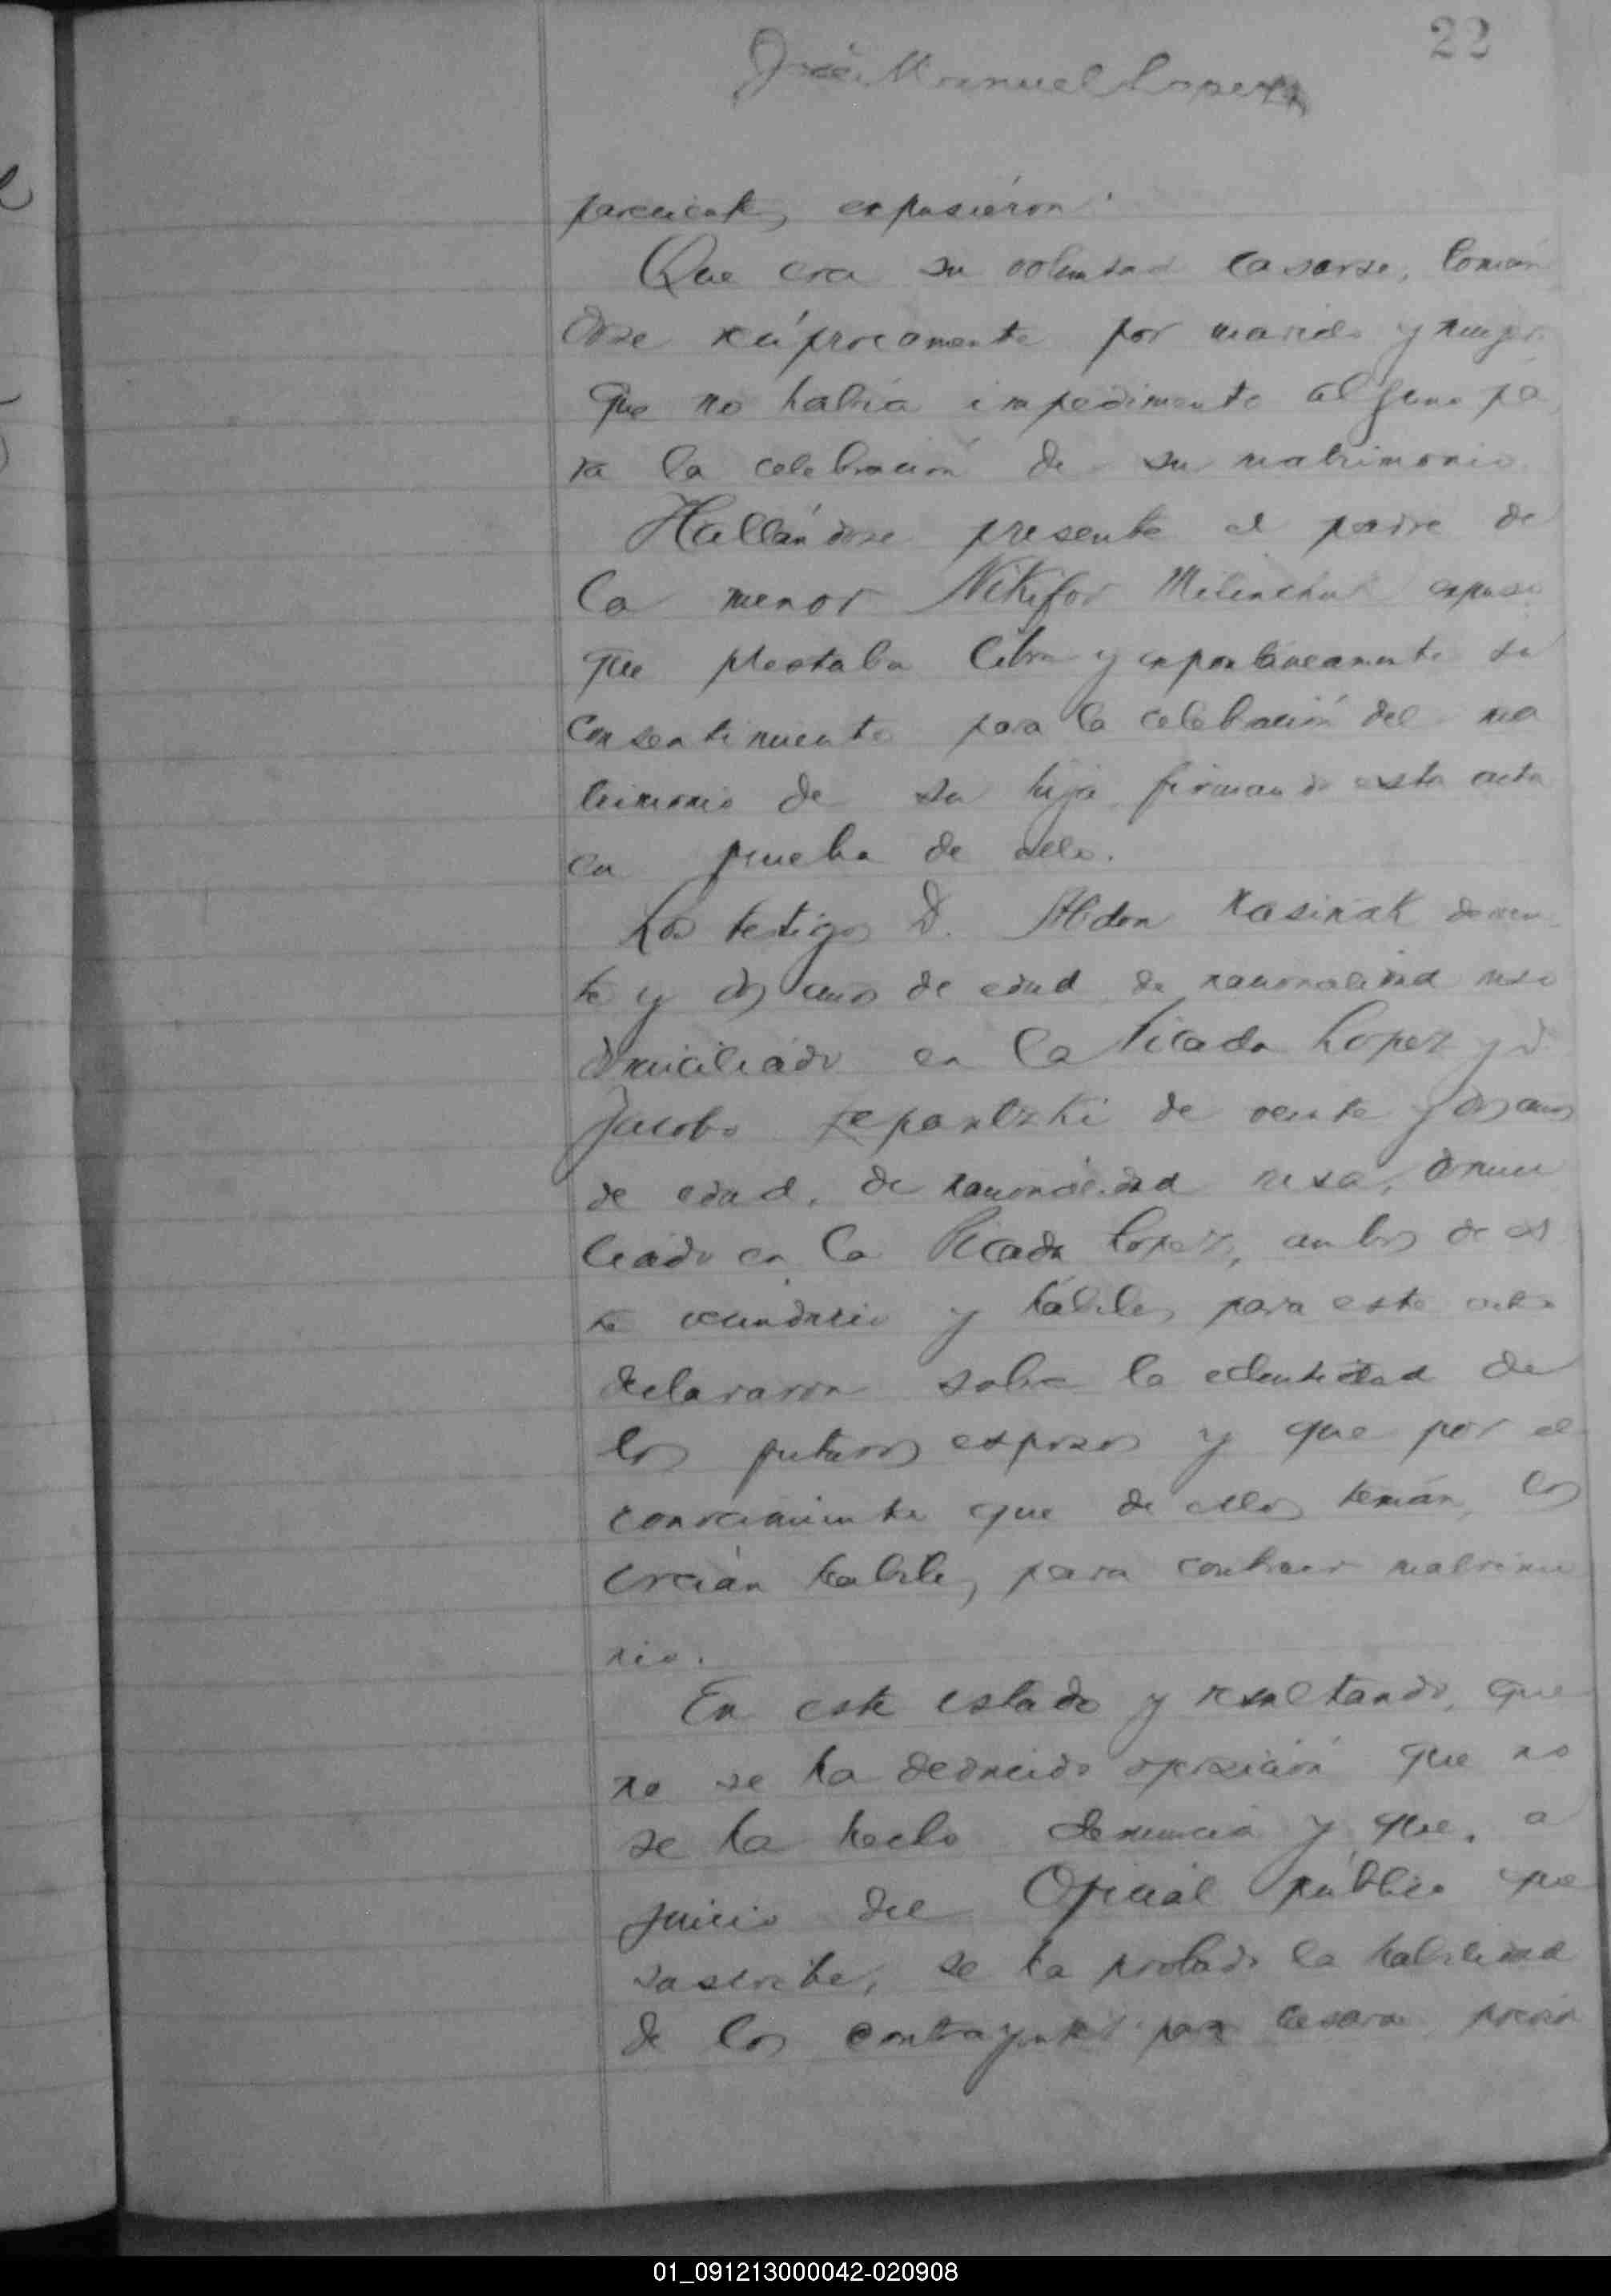 22
José Manuel Lopez
parecientes, expusieron:
Que era su voluntad casarse, toman
dose recíprocamente por marido y mujer
que no había impedimento alguno pa
ra la celebración de su matrimonio
Hallándose presente el padre de
la menor Nikifor Melinchuk expuso
que prestaba libre y espontáneamente su
consentimiento para la celebración del ma
trimonio de su hija firmando esta acta
en prueba de ello.
Los testigos D. Abdon Kasinak de vein
te y dos años de edad de nacionalidad rusa
domiciliado en la Picada Lopez y D.
Jacobo Zepantzki de veinte y dos años
de edad, de nacionalidad rusa, domici
liado en la Picada Lopez, ambos de es
te vecindario y hábiles para este acto
declararon sobre la identidad de
los futuros esposos y que por el
conocimiento que de ellos tenían, los
creían habiles para contraer matrimo
nio.
En este estado y resultando, que
no se ha deducido oposición que no
se ha hecho denuncia y que, a
juicio del Oficial público que
suscribe, se ha probado la habilidad
de los contrayentes para casarse previa
01_091213000042-020908